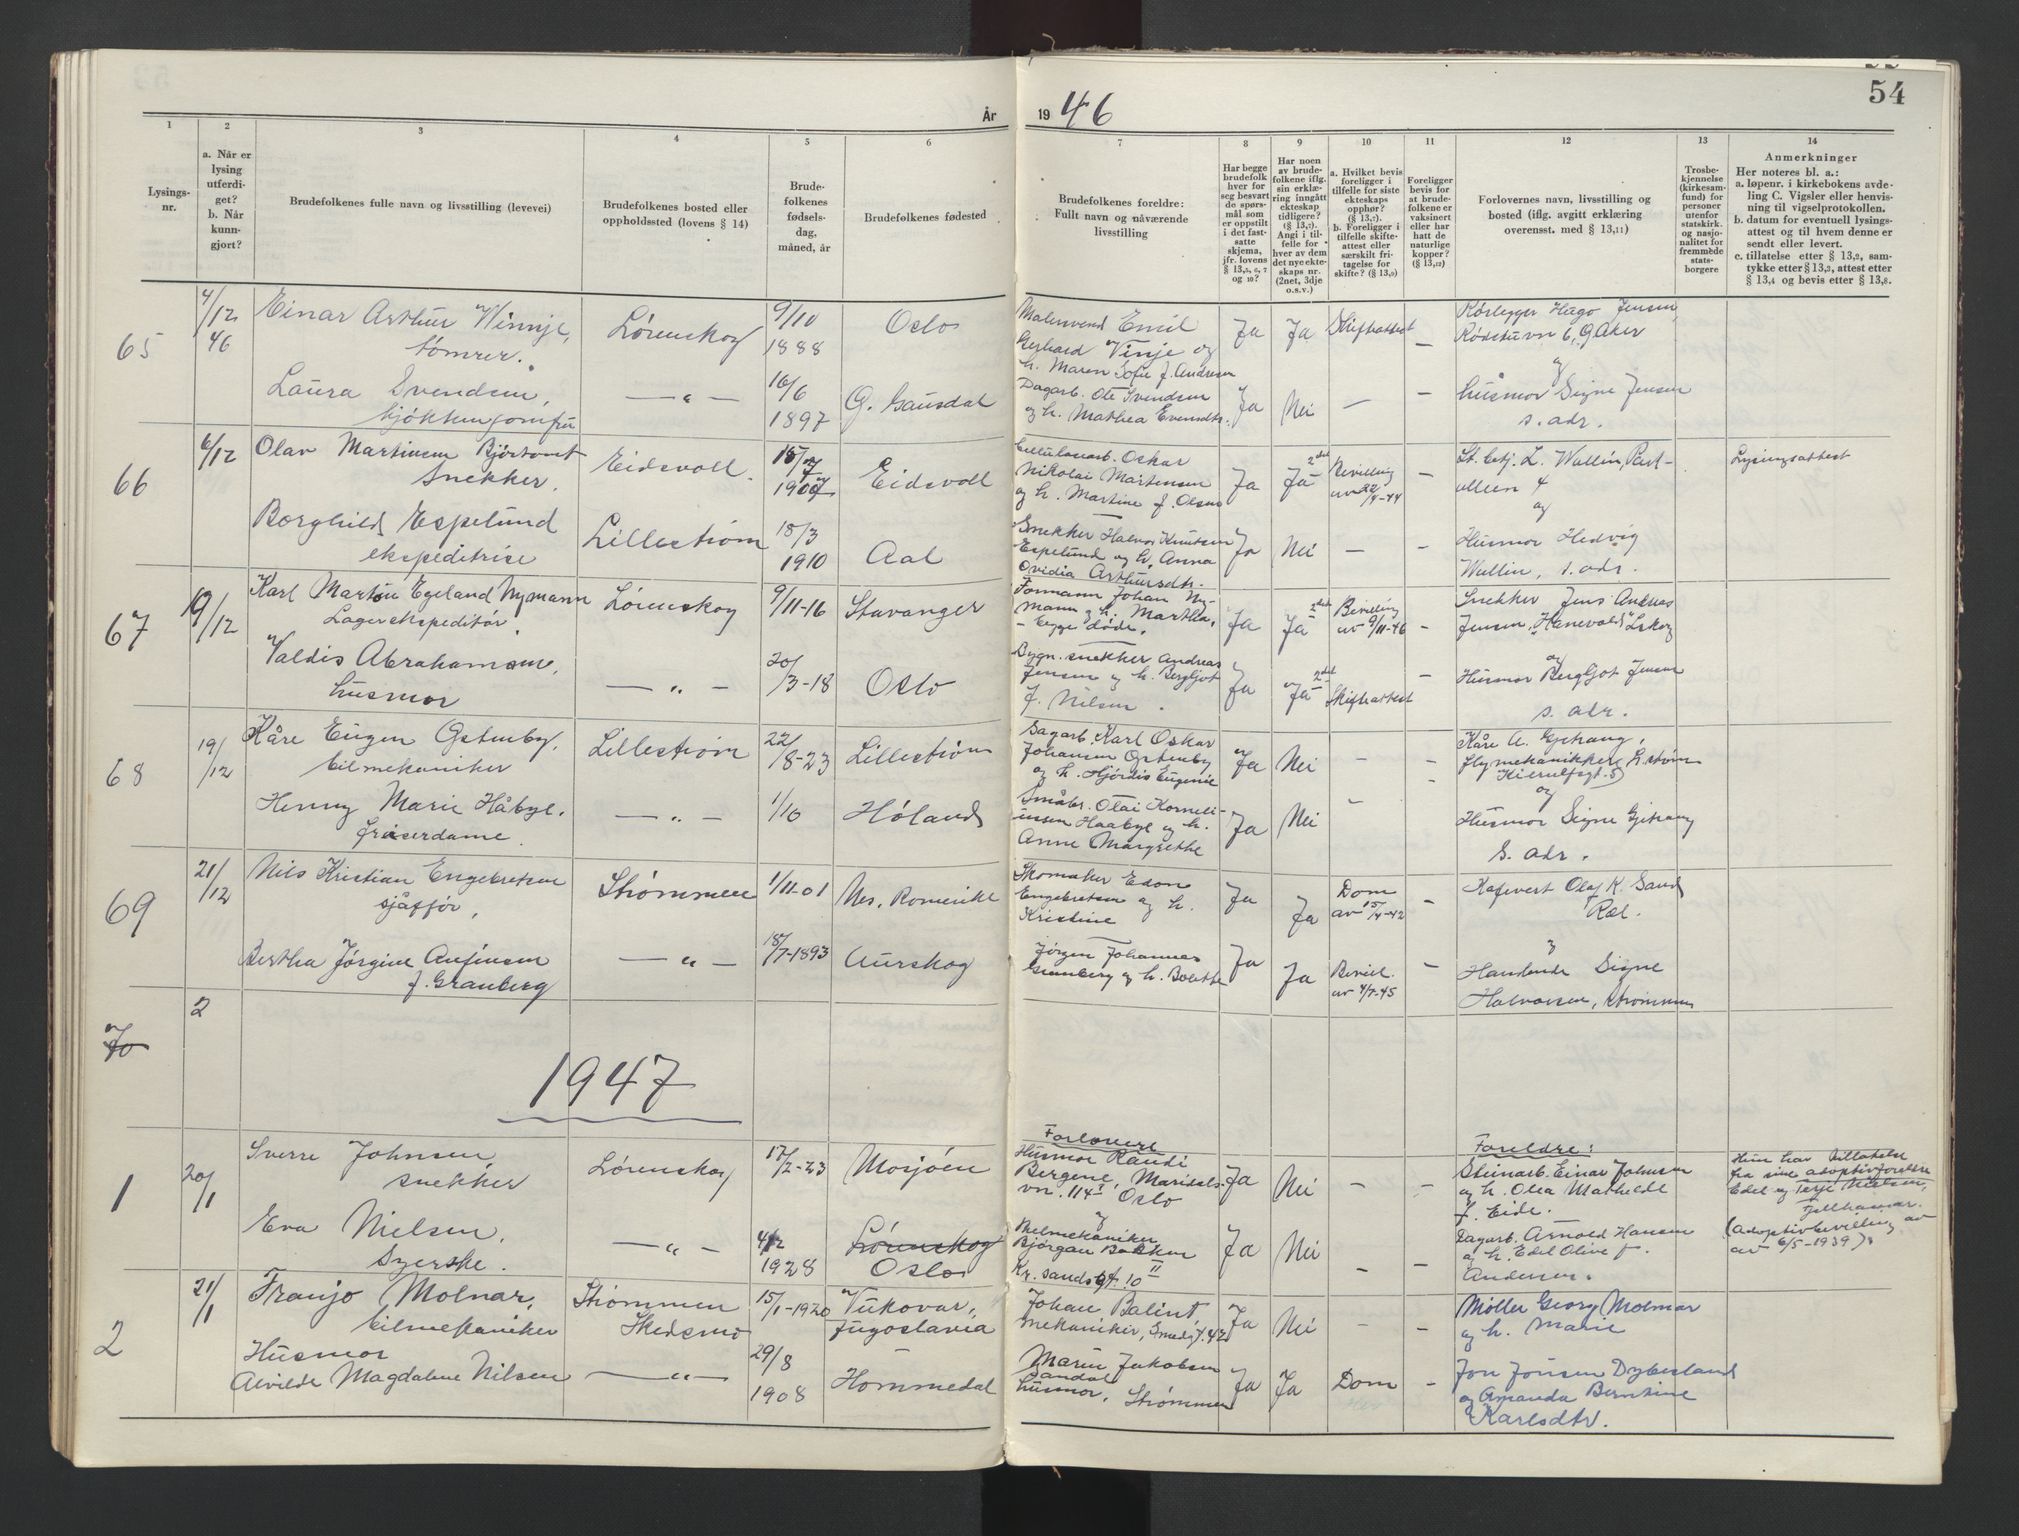 54
År
19 46
1
2
3
4
5
6
7
8
9
10
11
12
13
14
Lysings-
nr.
a. Når er
lysing
utferdi-
get?
b. Når
kunn-
gjort?
Brudefolkenes fulle navn og livsstilling (levevei)
Brudefolkenes bosted eller
oppholdssted (lovens § 14)
Brude-
folkenes
fødsels-
dag,
måned, år
Brudefolkenes fødested
Brudefolkenes foreldre:
Fullt navn og nåværende
livsstilling
Har begge
brudefolk
hver for
seg besvart
de spørs-
mål som
er oppstilt
i det fast-
satte
skjema,
jfr. lovens
§ 13,5, 6, 7
og 10?
Har noen
av brude-
folkene iflg.
sin erklæ-
ring inngått
ekteskap
tidligere?
(§ 13,7).
Angi i til-
felle for
hver av dem
det nye ekte-
skaps nr.
(2net, 3dje
o.s.v.)
a. Hvilket bevis
foreligger i
tilfelle for siste
ekteskaps
opphør?
(§ 13,7).
b. Foreligger i
tilfelle skifte-
attest eller
særskilt fri-
tagelse for
skifte? (§ 13,9)
Foreligger
bevis for
at brude-
folkene er
vaksinert
eller har
hatt de
naturlige
kopper?
(§ 13,12)
Forlovernes navn, livsstilling og
bosted (iflg. avgitt erklæring
overensst. med § 13,11)
Trosbe-
kjennelse
(kirkesam-
fund) for
personer
utenfor
statskirk.
og nasjo-
nalitet for
fremmede
stats-
borgere
Anmerkninger
Her noteres bl. a.:
a. løpenr. i kirkebokens avde-
ling C. Vigsler eller henvis-
ning til vigselprotokollen.
b. datum for eventuell lysings-
attest og til hvem denne er
sendt eller levert.
c. tillatelse etter § 13,2, sam-
tykke etter § 13,3, attest etter
§ 13,4 og bevis etter § 13,8.
65
4/12
46
Einar Arthur Winnje,
tømrer.
Lørenskog
9/10
1888
Oslo
Malersvend Emil
Gerhard Vinje og
h. Maren Sofie f. Andresen
Ja
Ja
Skifteattest
—
Rørlegger Hugo Jensen,
Rødstuvn 6, Ø Aker
og
Laura Svendsen,
kjøkkenjomfru
— " —
16/6
1897
G. Gausdal
Dagarb. Ole Svendsen
og h. Mathea Evensdtr.
Ja
Nei
—
—
husmor Signe Jensen
s. adr.
66
6/12
Olav Martinsen Bjørtomt
Snekker.
Eidsvoll.
15/7
1907
Eidsvoll
Cellulosearb. Oskar
Nikolai Martinsen
og h. Martine f. Olsen
Ja
2det
Ja
Bevilling
av 22/4-44
—
St. betj. L. Wallin, Post-
alleen 4
og
Lysingsattest
Borghild Espelund
ekspeditrise
Lillestrøm
18/3
1910
Aal
Snekker Halvor Knutsen
Espelund og h. Anna
Ovidia Arthursdtr.
Ja
Nei
—
—
Husmor Hedvig
Wallin, s. adr.
67
19/12
Karl Martin Egeland Nymann
Lagerekspeditør
Lørenskog
9/11-16
Stavanger
Formann Johan Ny-
mann og h. Martha,
— begge døde.
Ja
2det
Ja
Bevilling
av 9/11-46
—
Snekker Jens Andreas
Jensen, "Hanevold" L.skog
og
Valdis Abrahamsen,
husmor
— " —
20/3-18
Oslo
Bygn.snekker Andreas
Jensen og h. Bergljot
f. Nilsen.
Ja
2det
Ja
Skifteattest
—
Husmor Bergljot Jensen
s. adr.
68
19/12
Kåre Eugen Østenby,
bilmekaniker
Lillestrøm
22/8-23
Lillestrøm
Sagarb. Karl Oskar
Johansen Østenby
og h. Hjørdis Eugenie
Ja
Nei
—
—
Kåre A. Gjetrang,
flymekanikker L.strøm
Kierulfsgt. 5)
og
Henny Marie Håbye.
friserdame.
— " —
1/10
Høland
Småbr. Olai Korneli-
ussen Haabye og h.
Anne Margrethe
Ja
Nei
—
Husmor Signe Gjetrang
s. adr.
69
21/12
Nils Kristian Engebretsen
sjåffør,
Strømmen
1/11-01
Nes, Romerike
Skomaker Edon
Engebretsen og h.
Kristine
Ja
Ja
Dom
av 15/4-42
—
Kafevert Olaf K. Sand
Ræl.
og
Bertha Jørgine Anfinsen
f. Granberg
— " —
18/7-1893
Aurskog
Jørgen Johannes
Granberg og h. Bolette
Ja
Ja
Bevill.
av 4/7-45
—
Handlende Signe
Halvorsen, Strømmen
70
2
1947
1
20/1
Sverre Johnsen,
snekker
Lørenskog
17/2-23
Mosjøen
Forlovere
Husmor Randi
Bergene, Maridals-
vn. 114 I Oslo
og
Ja
Nei
—
—
Foreldre:
Steinarb. Einar Johnsen
og h. Olea Mathilde
f. Eide.
Hun har tillatelse
fra sine adoptivforeldre
Edel og Terje Nielsen,
Fjellhamar.
(Adoptivbevilling av
av 6/5-1939)
Eva Nielsen,
Syerske.
— " —
4/12
1928
Lørenskog
Oslo
Bilmekaniker
Bjørgan Bakken
Kr. sandsgt. 10 II
Ja
Nei
—
—
Dagarb. Arnold Hansen
og h. Edel Olive f.
Andersen.
2
21/1
Franjo Molnar,
bilmekaniker
Strømmen
Skedsmo
15/1-1920
Vukovar,
Jugoslavia
Johan Balint,
mekaniker, Smedgt. 42
Ja
Nei
—
—
Møller Georg Molmar
og h. Marie
Husmor
Alvilde Magdalene Nilsen
— " —
29/8
1908
Hommedal
Marie Jakobsen
Sandal
husmor, Strømmen
Ja
Ja
Dom
—
Jon Jonsen Dybesland
og Amanda Berntine
Karlsdtr.